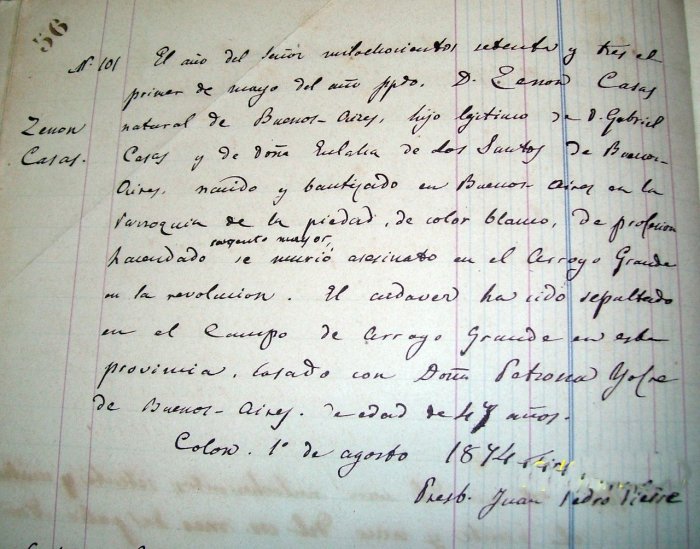 56
N. 101 El año del Señor milochocientos setenta y tres el
primer de mayo del año ppdo. D. Zenon Casas
Zenon
Casas.
natural de Buenos-Aires, hijo lejitimo de D. Gabriel
Casas y de doña Eulalia de los Santos de Buenos-
Aires, nacido y bautizado en Buenos Aires en la
Parroquia de la piedad, de color blanco, de profesion
sargento mayor,
hacendado se murió asesinato en el Arroyo Grande
en la revolucion. El cadaver ha sido sepultado
en el Campo de Arroyo Grande en esta
provincia, casado con Doña Petrona Yofre
de Buenos-Aires. de edad de 47 años.
Colon. 1° de agosto 1874
Presb. Juan Pedro